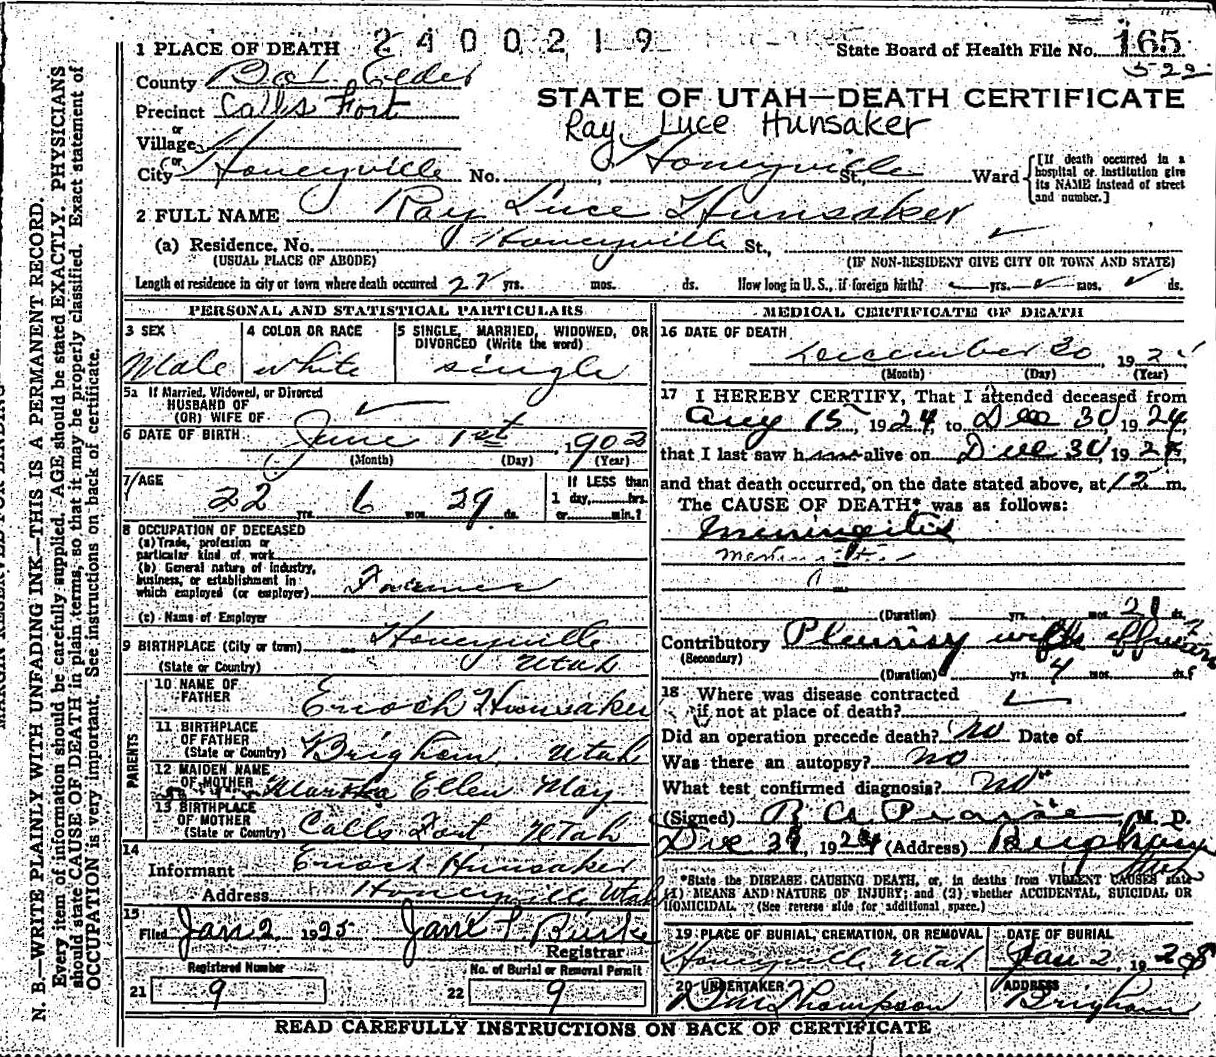 1 PLACE OF DEATH 2400219 State Board of Health File No. 165
522
County Box Elder
STATE OF UTAH—DEATH CERTIFICATE
Precinct Calls Fort
Ray Luce Hunsaker
or
Village
or
City Honeyville No. , Honeyville St., Ward [If death occurred in a hospital or institution give its NAME instead of street and number.]
2 FULL NAME Ray Luce Hunsaker
(a) Residence. No. Honeyville St.,
(USUAL PLACE OF ABODE) (IF NON-RESIDENT GIVE CITY OR TOWN AND STATE)
Length of residence in city or town where death occurred 22 yrs. mos. ds. How long in U.S., if foreign birth? yrs. mos. ds.
PERSONAL AND STATISTICAL PARTICULARS
3 SEX
Male
4 COLOR OR RACE
white
5 SINGLE, MARRIED, WIDOWED, OR DIVORCED (Write the word)
single
5a If Married, Widowed, or Divorced
HUSBAND OF
(OR) WIFE OF
6 DATE OF BIRTH June 1st, 1902
(Month) (Day) (Year)
7 AGE 22 yrs. 6 mos. 29 ds.
If LESS than
1 day, hrs.
or min.?
8 OCCUPATION OF DECEASED
(a) Trade, profession or
particular kind of work
(b) General nature of industry,
business, or establishment in
which employed (or employer) Farmer
(c) Name of Employer
9 BIRTHPLACE (City or town) Honeyville
(State or Country) Utah
PARENTS
10 NAME OF
FATHER Enoch Hunsaker
11 BIRTHPLACE
OF FATHER
(State or Country) Brigham, Utah
12 MAIDEN NAME
OF MOTHER Martha Ellen May
13 BIRTHPLACE
OF MOTHER
(State or Country) Calls Fort Utah
14
Informant Enoch Hunsaker
Address Honeyville Utah
15
Filed Jan 2, 1925 Jane T Burke
Registrar
Registered Number
21 9
No. of Burial or Removal Permit
22 9
MEDICAL CERTIFICATE OF DEATH
16 DATE OF DEATH
December 30, 192
(Month) (Day) (Year)
17 I HEREBY CERTIFY, That I attended deceased from
Aug 15, 1924, to Dec 30 1924,
that I last saw him alive on Dec 30, 1924,
and that death occurred, on the date stated above, at 12 m.
The CAUSE OF DEATH* was as follows:
Meningitis
(Duration) yrs. mos. 21 ds.
Contributory Pleurisy with effusion
(Secondary)
(Duration) yrs. 4 mos. ds.
18 Where was disease contracted
if not at place of death?
Did an operation precede death? No Date of
Was there an autopsy? no
What test confirmed diagnosis? no
(Signed) R A Pearse M. D.
Dec 31, 1924 (Address) Brigham
Utah
*State the DISEASE CAUSING DEATH, or, in deaths from VIOLENT CAUSES state
(1) MEANS AND NATURE OF INJURY; and (2) whether ACCIDENTAL, SUICIDAL OR
HOMICIDAL. (See reverse side for additional space.)
19 PLACE OF BURIAL, CREMATION, OR REMOVAL
Honeyville Utah
DATE OF BURIAL
Jan 2, 192
20 UNDERTAKER
Thompson
ADDRESS
Brigham
READ CAREFULLY INSTRUCTIONS ON BACK OF CERTIFICATE
N. B.—WRITE PLAINLY WITH UNFADING INK—THIS IS A PERMANENT RECORD.
Every item of information should be carefully supplied. AGE should be stated EXACTLY. PHYSICIANS
should state CAUSE OF DEATH in plain terms, so that it may be properly classified. Exact statement of
OCCUPATION is very important. See instructions on back of certificate.